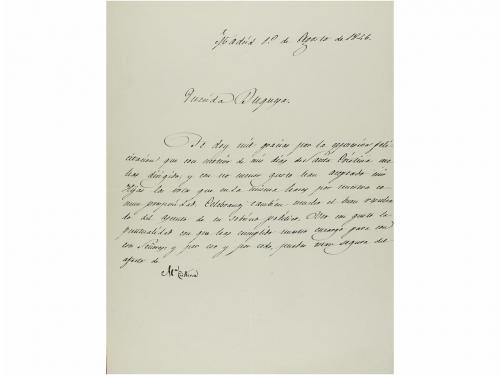 Madrid 1º de Agosto de 1846.
Querida Duquesa.
Te doy mil gracias por la expresiva feli-
citacion que con motivo de mis dias de Santa Cristina me
has dirigido, y con no menor gusto han aceptado mis
Hijas la que en la misma haces por nuestra co-
mun prosperidad. Celebramos tambien mucho el buen resulta-
do del asunto de tu sobrino politico. Veo con gusto la
puntualidad con que has cumplido nuestro encargo para con
los Señores y por eso y por todo, puedes estar segura del
afecto de
Mª Cristina